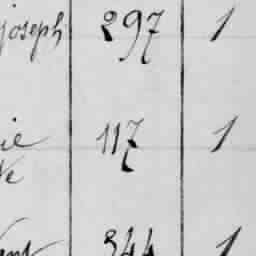 joseph 297 1
ie 117 1
ve
344 1